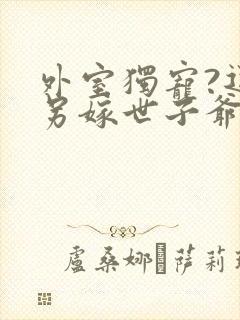 外室獨寵?
另嫁世子爺
盧桑娜·萨莉